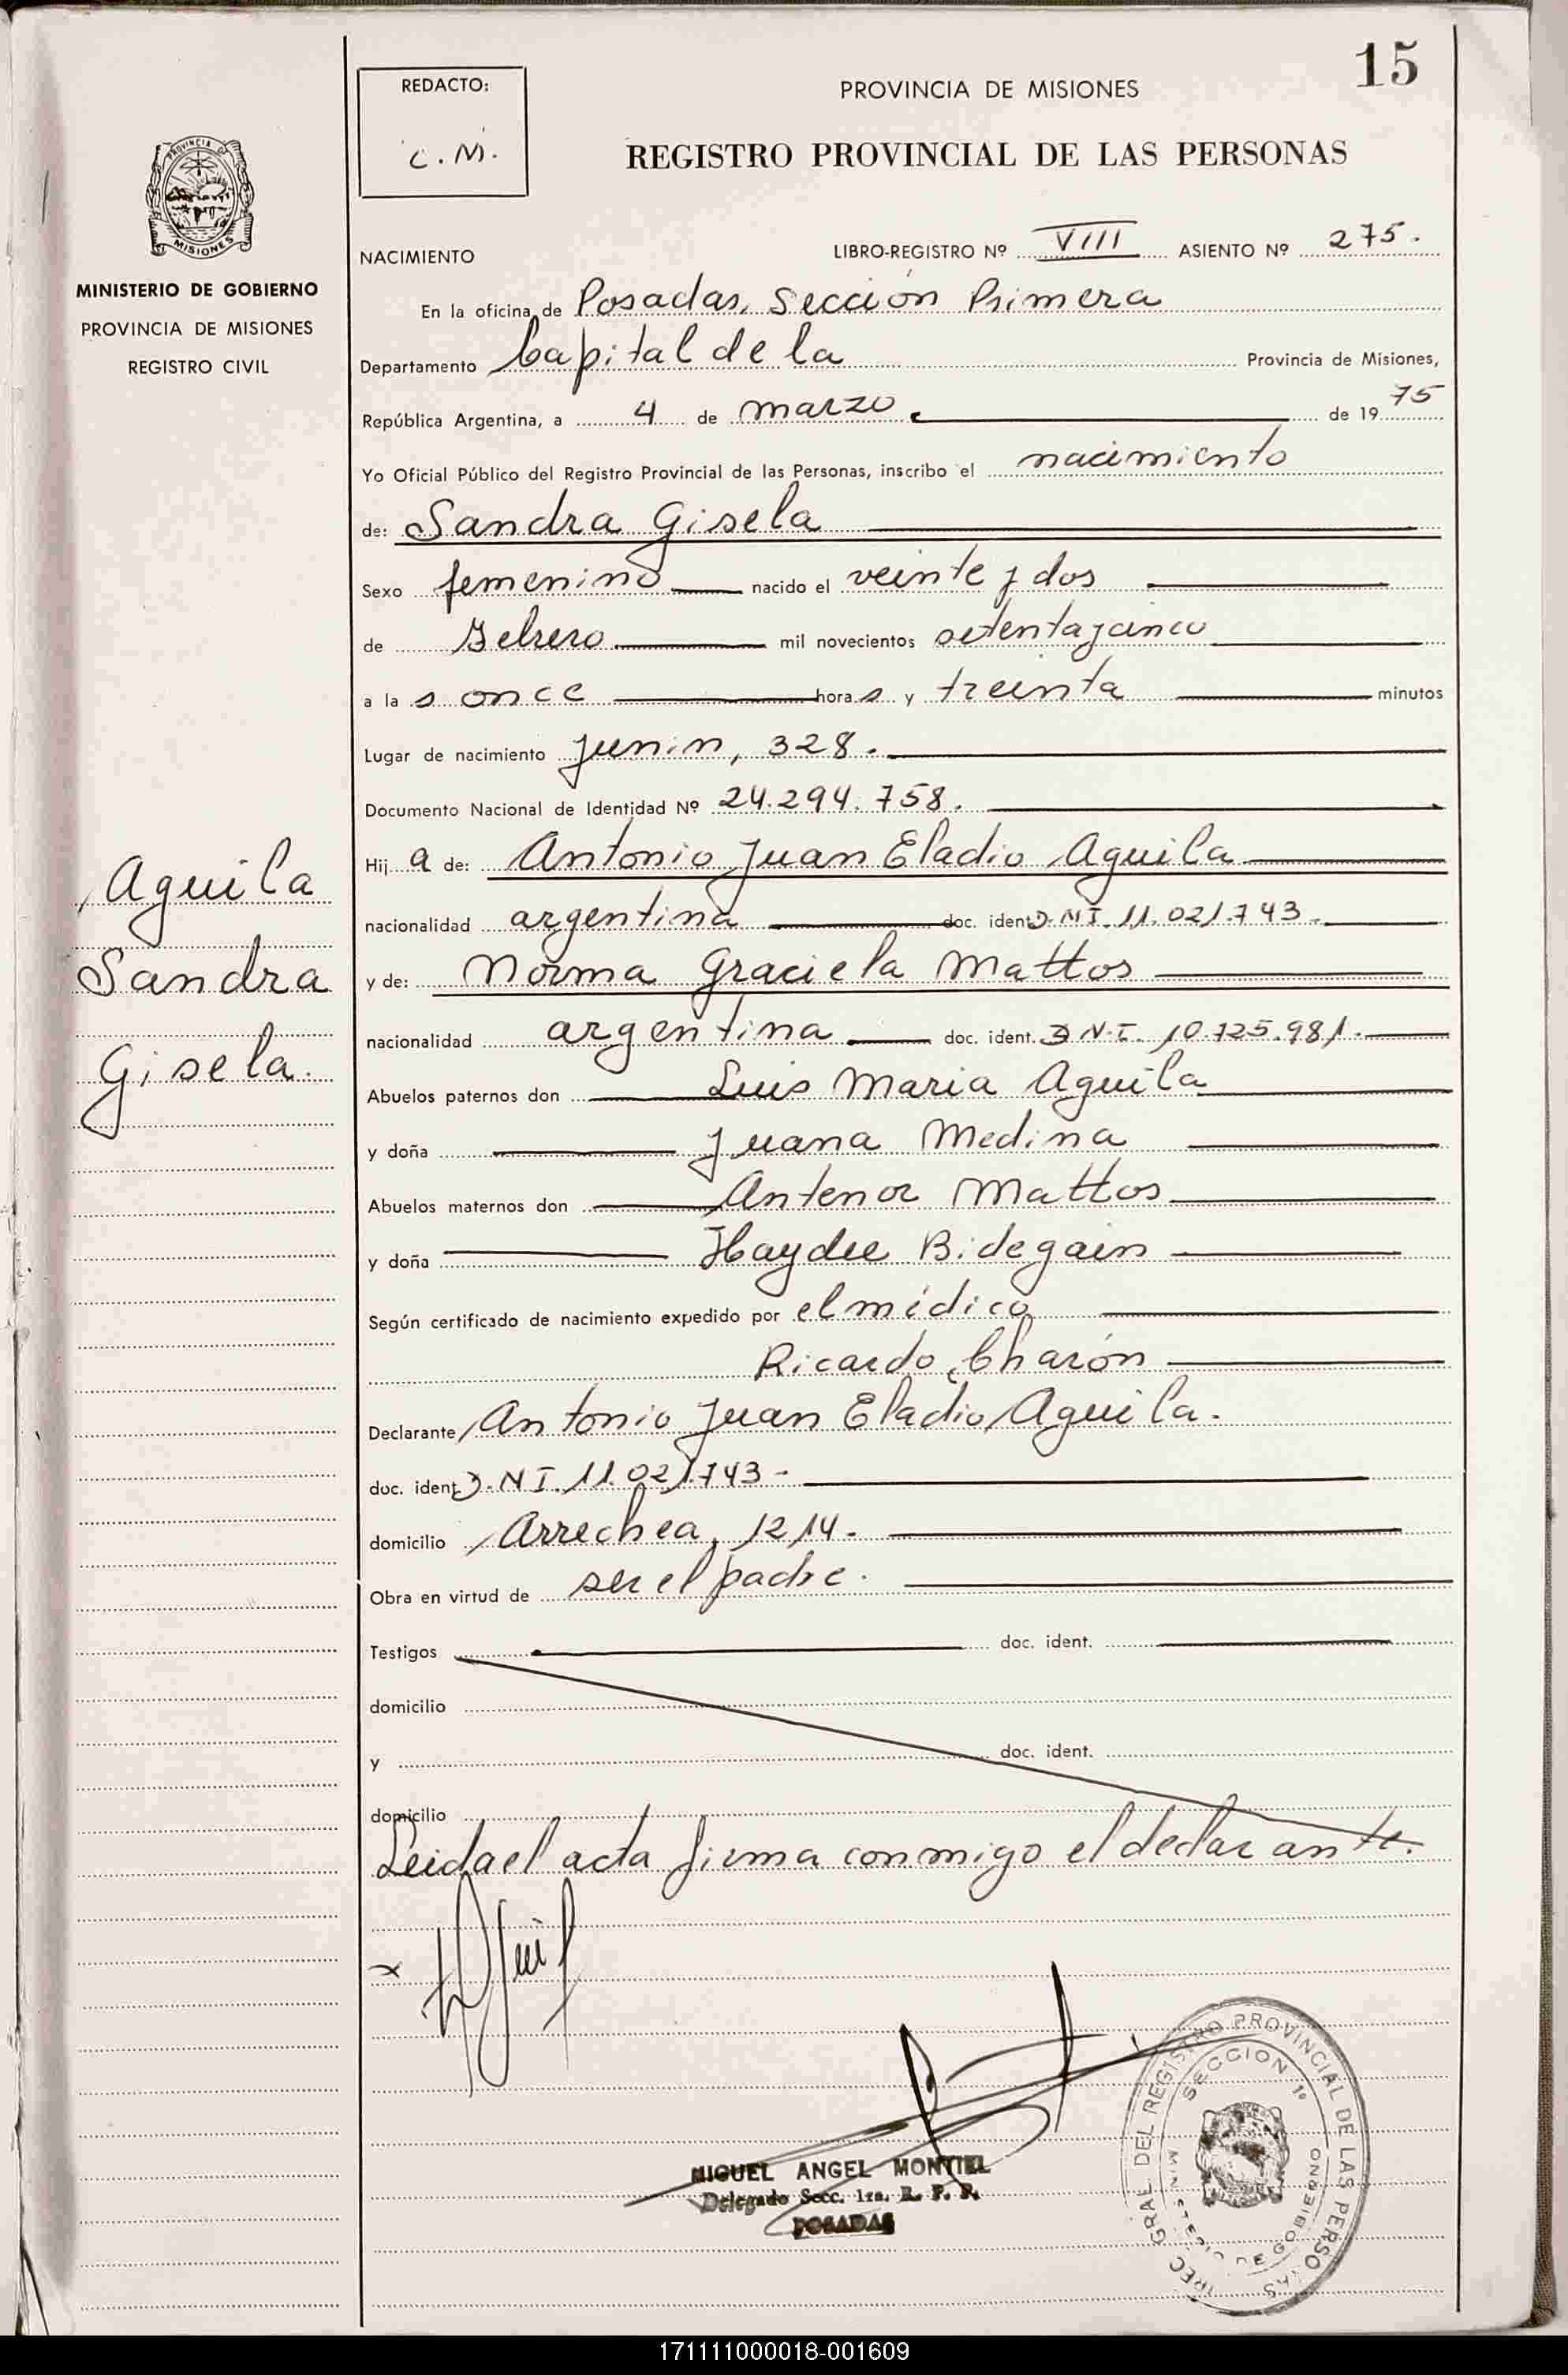 15
REDACTO:
C. M.
PROVINCIA DE MISIONES
REGISTRO PROVINCIAL DE LAS PERSONAS
PROVINCIA DE
MISIONES
MINISTERIO DE GOBIERNO
PROVINCIA DE MISIONES
REGISTRO CIVIL
NACIMIENTO LIBRO-REGISTRO Nº VIII ASIENTO Nº 275.
En la oficina de Posadas, Sección Primera
Departamento Capital de la Provincia de Misiones,
República Argentina, a 4 de marzo de 1975
Yo Oficial Público del Registro Provincial de las Personas, inscribo el nacimiento
de: Sandra Gisela
Sexo femenino nacido el veinte y dos
de Febrero mil novecientos setenta y cinco
a la s once hora s y treinta minutos
Lugar de nacimiento Junin, 328.
Documento Nacional de Identidad Nº 24.294.758.
Hij a de: Antonio Juan Eladio Aguila
nacionalidad argentina doc. ident. D.N.I. 11.021.743.
y de: Norma Graciela Mattos
nacionalidad argentina doc. ident. D.N.I. 10.725.981.
Abuelos paternos don Luis Maria Aguila
y doña Juana Medina
Abuelos maternos don Antenor Mattos
y doña Haydee Bidegain
Según certificado de nacimiento expedido por el médico
Ricardo Charón
Declarante Antonio Juan Eladio Aguila.
doc. ident. D.N.I. 11.021.743-
domicilio Arrechea, 1214.
Obra en virtud de ser el padre.
Testigos doc. ident.
domicilio
y doc. ident.
domicilio
Leida el acta firma conmigo el declarante.
Aguila
Sandra
Gisela.
x
MIGUEL ANGEL MONTIEL
Delegado Secc. 1ra. R. P. P.
POSADAS
GRAL DEL REGISTRO PROVINCIAL DE LAS PERSONAS
SECCION 1º
MINISTERIO DE GOBIERNO
171111000018-001609